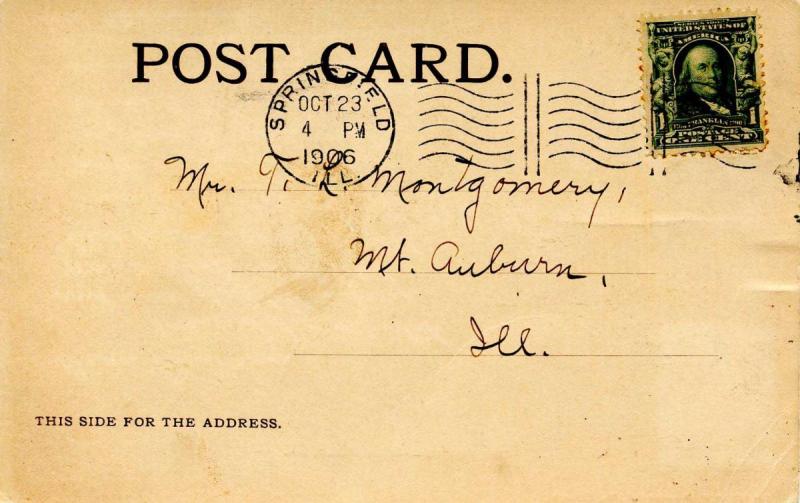 POST CARD.
SPRINGFIELD
OCT 23
4 PM
1906
ILL.
SERIES 1902
UNITED STATES OF
AMERICA
FRANKLIN
1 1
POSTAGE
ONE CENT
Mr. T. L. Montgomery,
Mt. Auburn,
Ill.
THIS SIDE FOR THE ADDRESS.